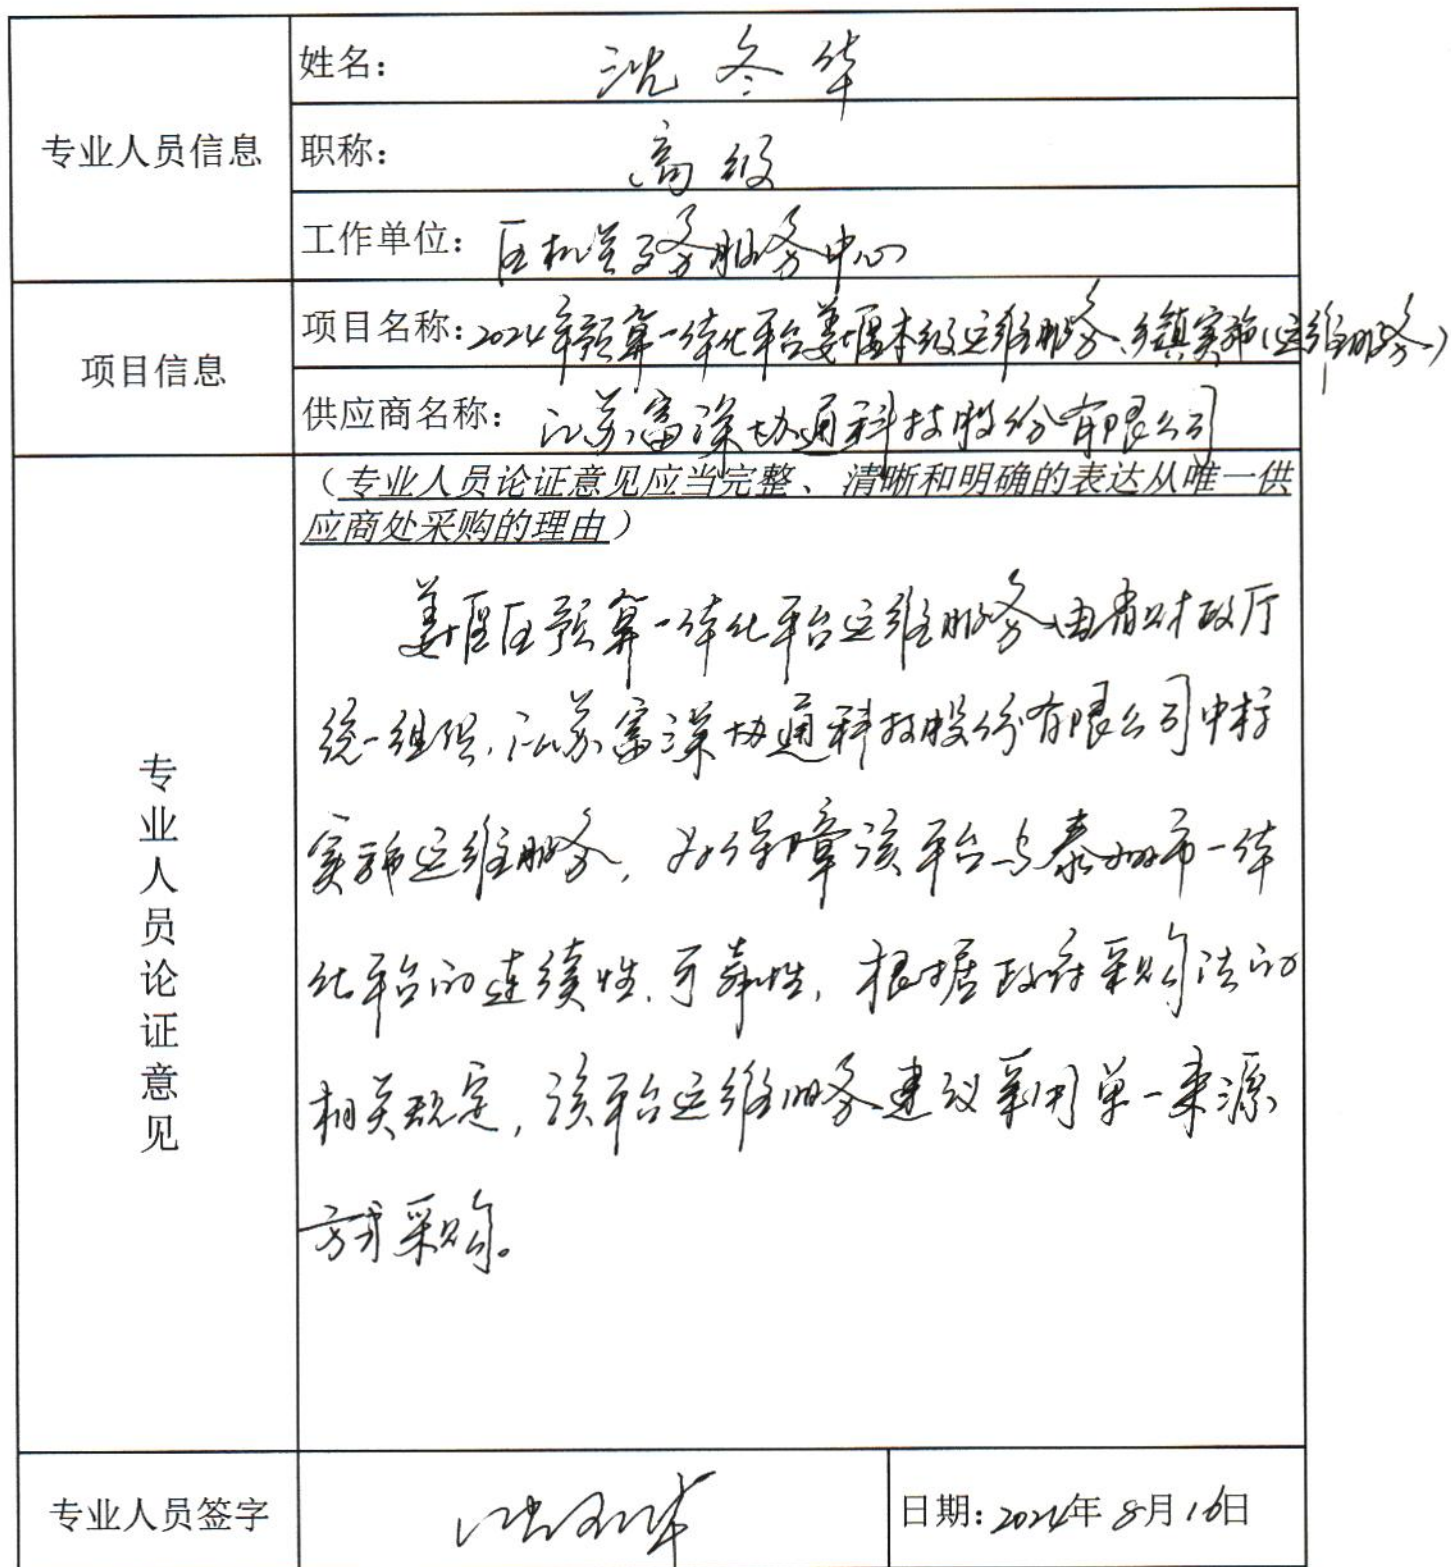 专业人员信息
姓名：沈冬华
职称：高级
工作单位：区机关事务服务中心
项目信息
项目名称：2024年预算一体化平台姜堰本级运维服务、乡镇实施（运维服务）
供应商名称：江苏富深协通科技股份有限公司
专业人员论证意见
（专业人员论证意见应当完整、清晰和明确的表达从唯一供
应商处采购的理由）
姜堰区预算一体化平台运维服务由省财政厅
统一组织，江苏富深协通科技股份有限公司中标
实施运维服务，为保障该平台与泰州市一体
化平台的连续性、可靠性，根据政府采购法的
相关规定，该平台运维服务建议采用单一来源
方式采购。
专业人员签字
沈冬华
日期：2024年8月16日